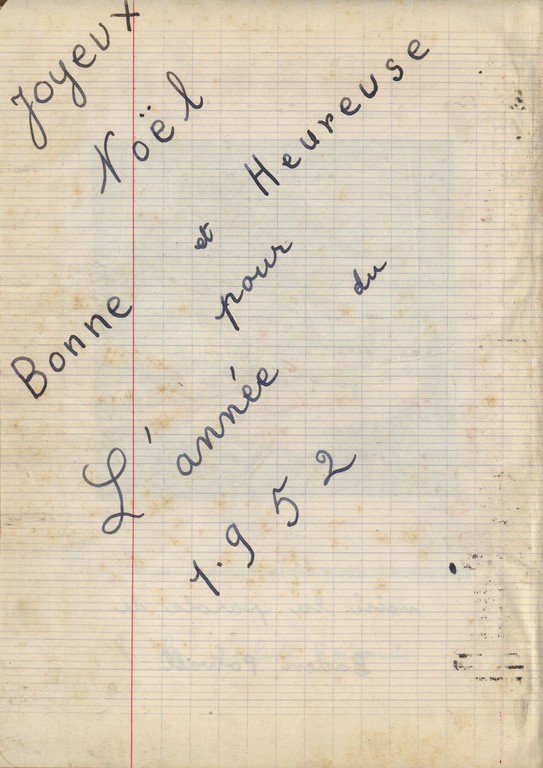 Joyeux
Noël
Bonne et Heureuse
pour
L'année du
1.952